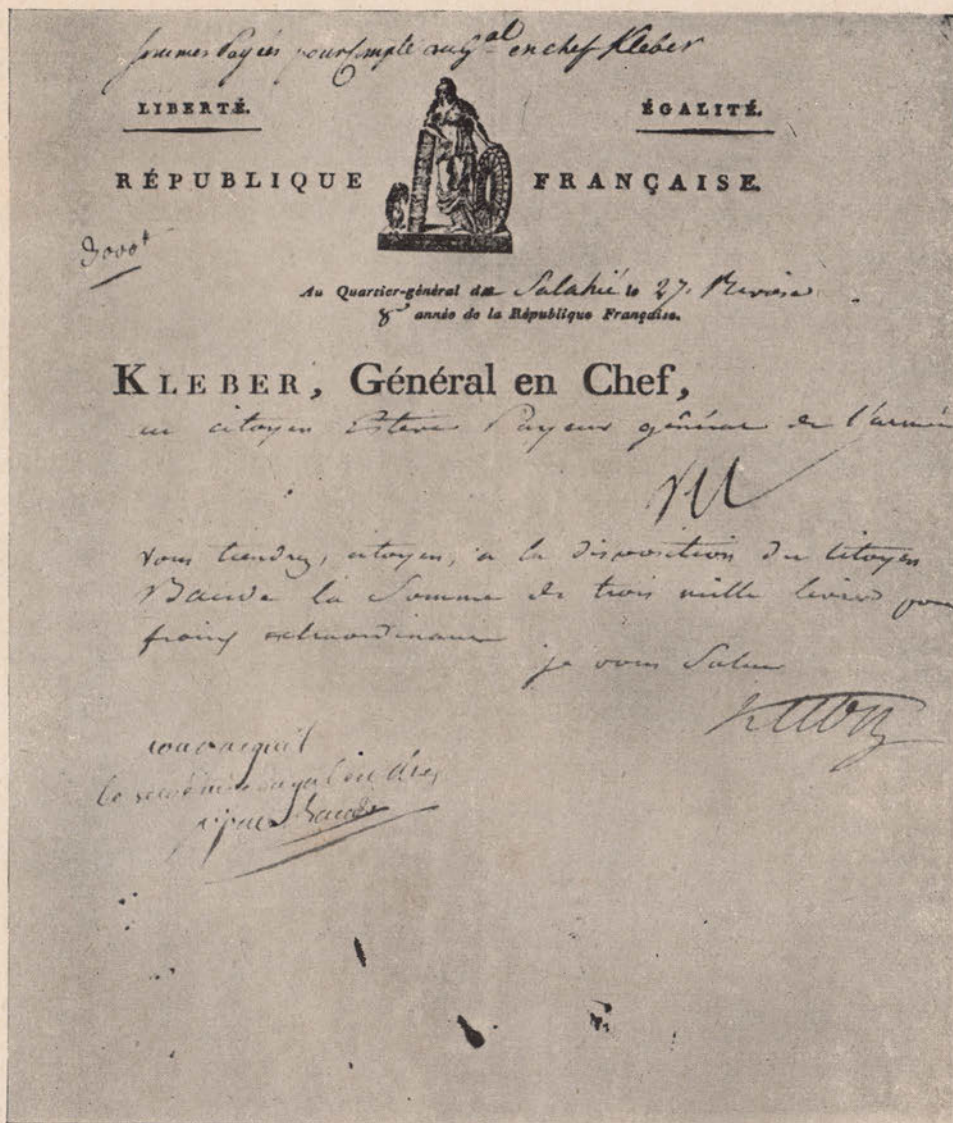 Sommes Payées pour Compte du G.al en chef Kleber
LIBERTÉ. ÉGALITÉ.
RÉPUBLIQUE FRANÇAISE.
3000
Au Quartier-général de Salahié le 27 Nivose
8 année de la République Française.
KLEBER, Général en Chef,
au citoyen Esteve Payeur général de l'armée
Vous tiendrez, citoyen, a la disposition du Citoyen
Baude la Somme de trois mille livres pour
fraix extraordinaires
je vous Salue
Kleber
pour acquit
le secrétaire du gal en chef
Baude